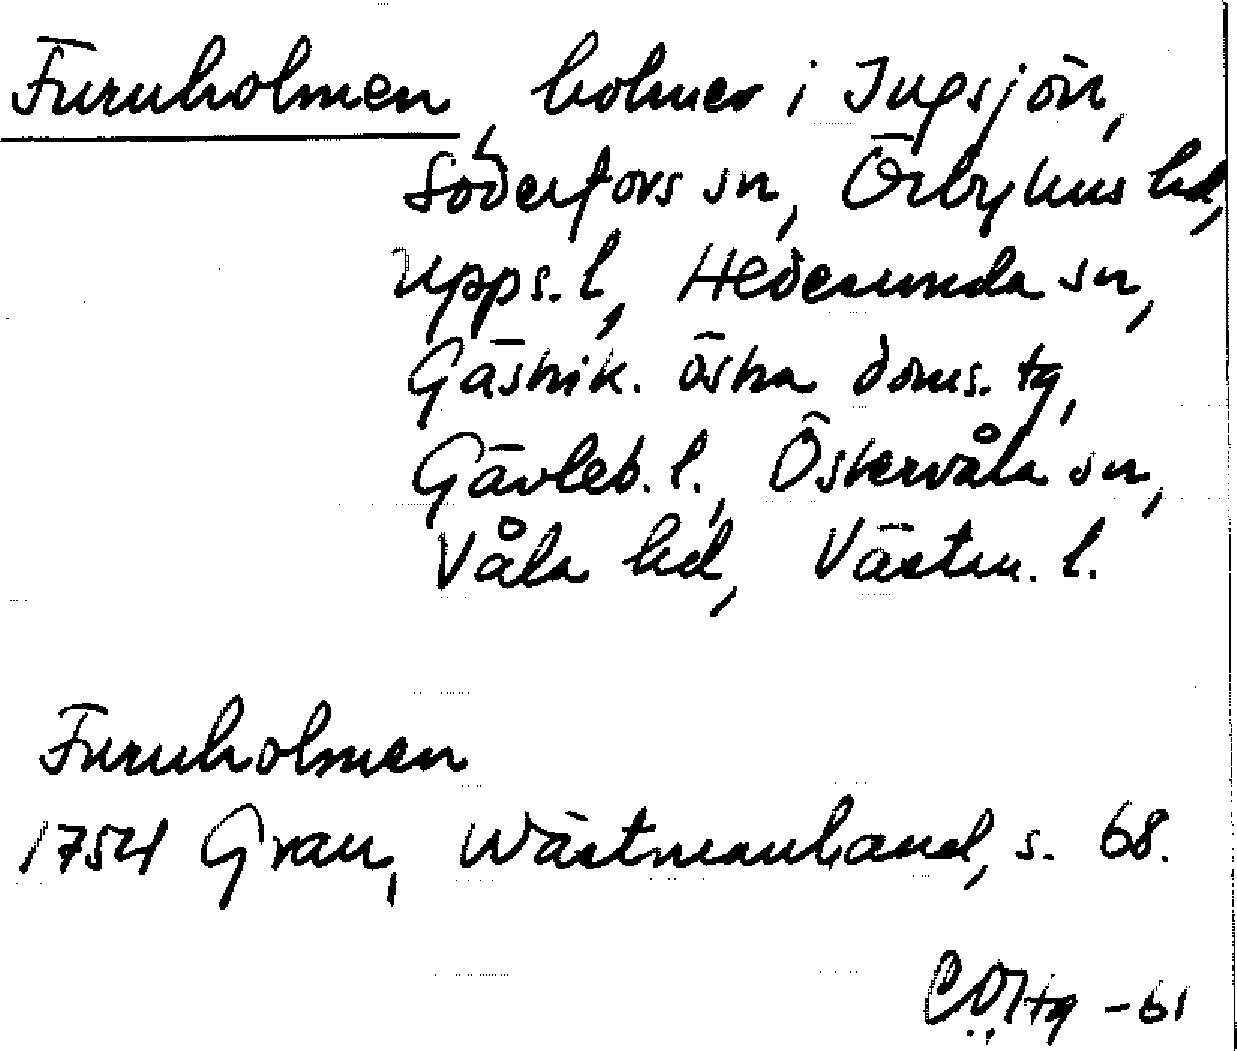 Furuholmen, holmer i Ingsjön,
Söderfors sn, Örbyhus hd,
Upps. l, Hedesunda sn,
Gästrik. östra doms. tg,
Gävleb. l., Östervåla sn,
Våla hd, Västm. l.
Furuholmen
1754 Grau, Wästmanland, s. 68.
-61